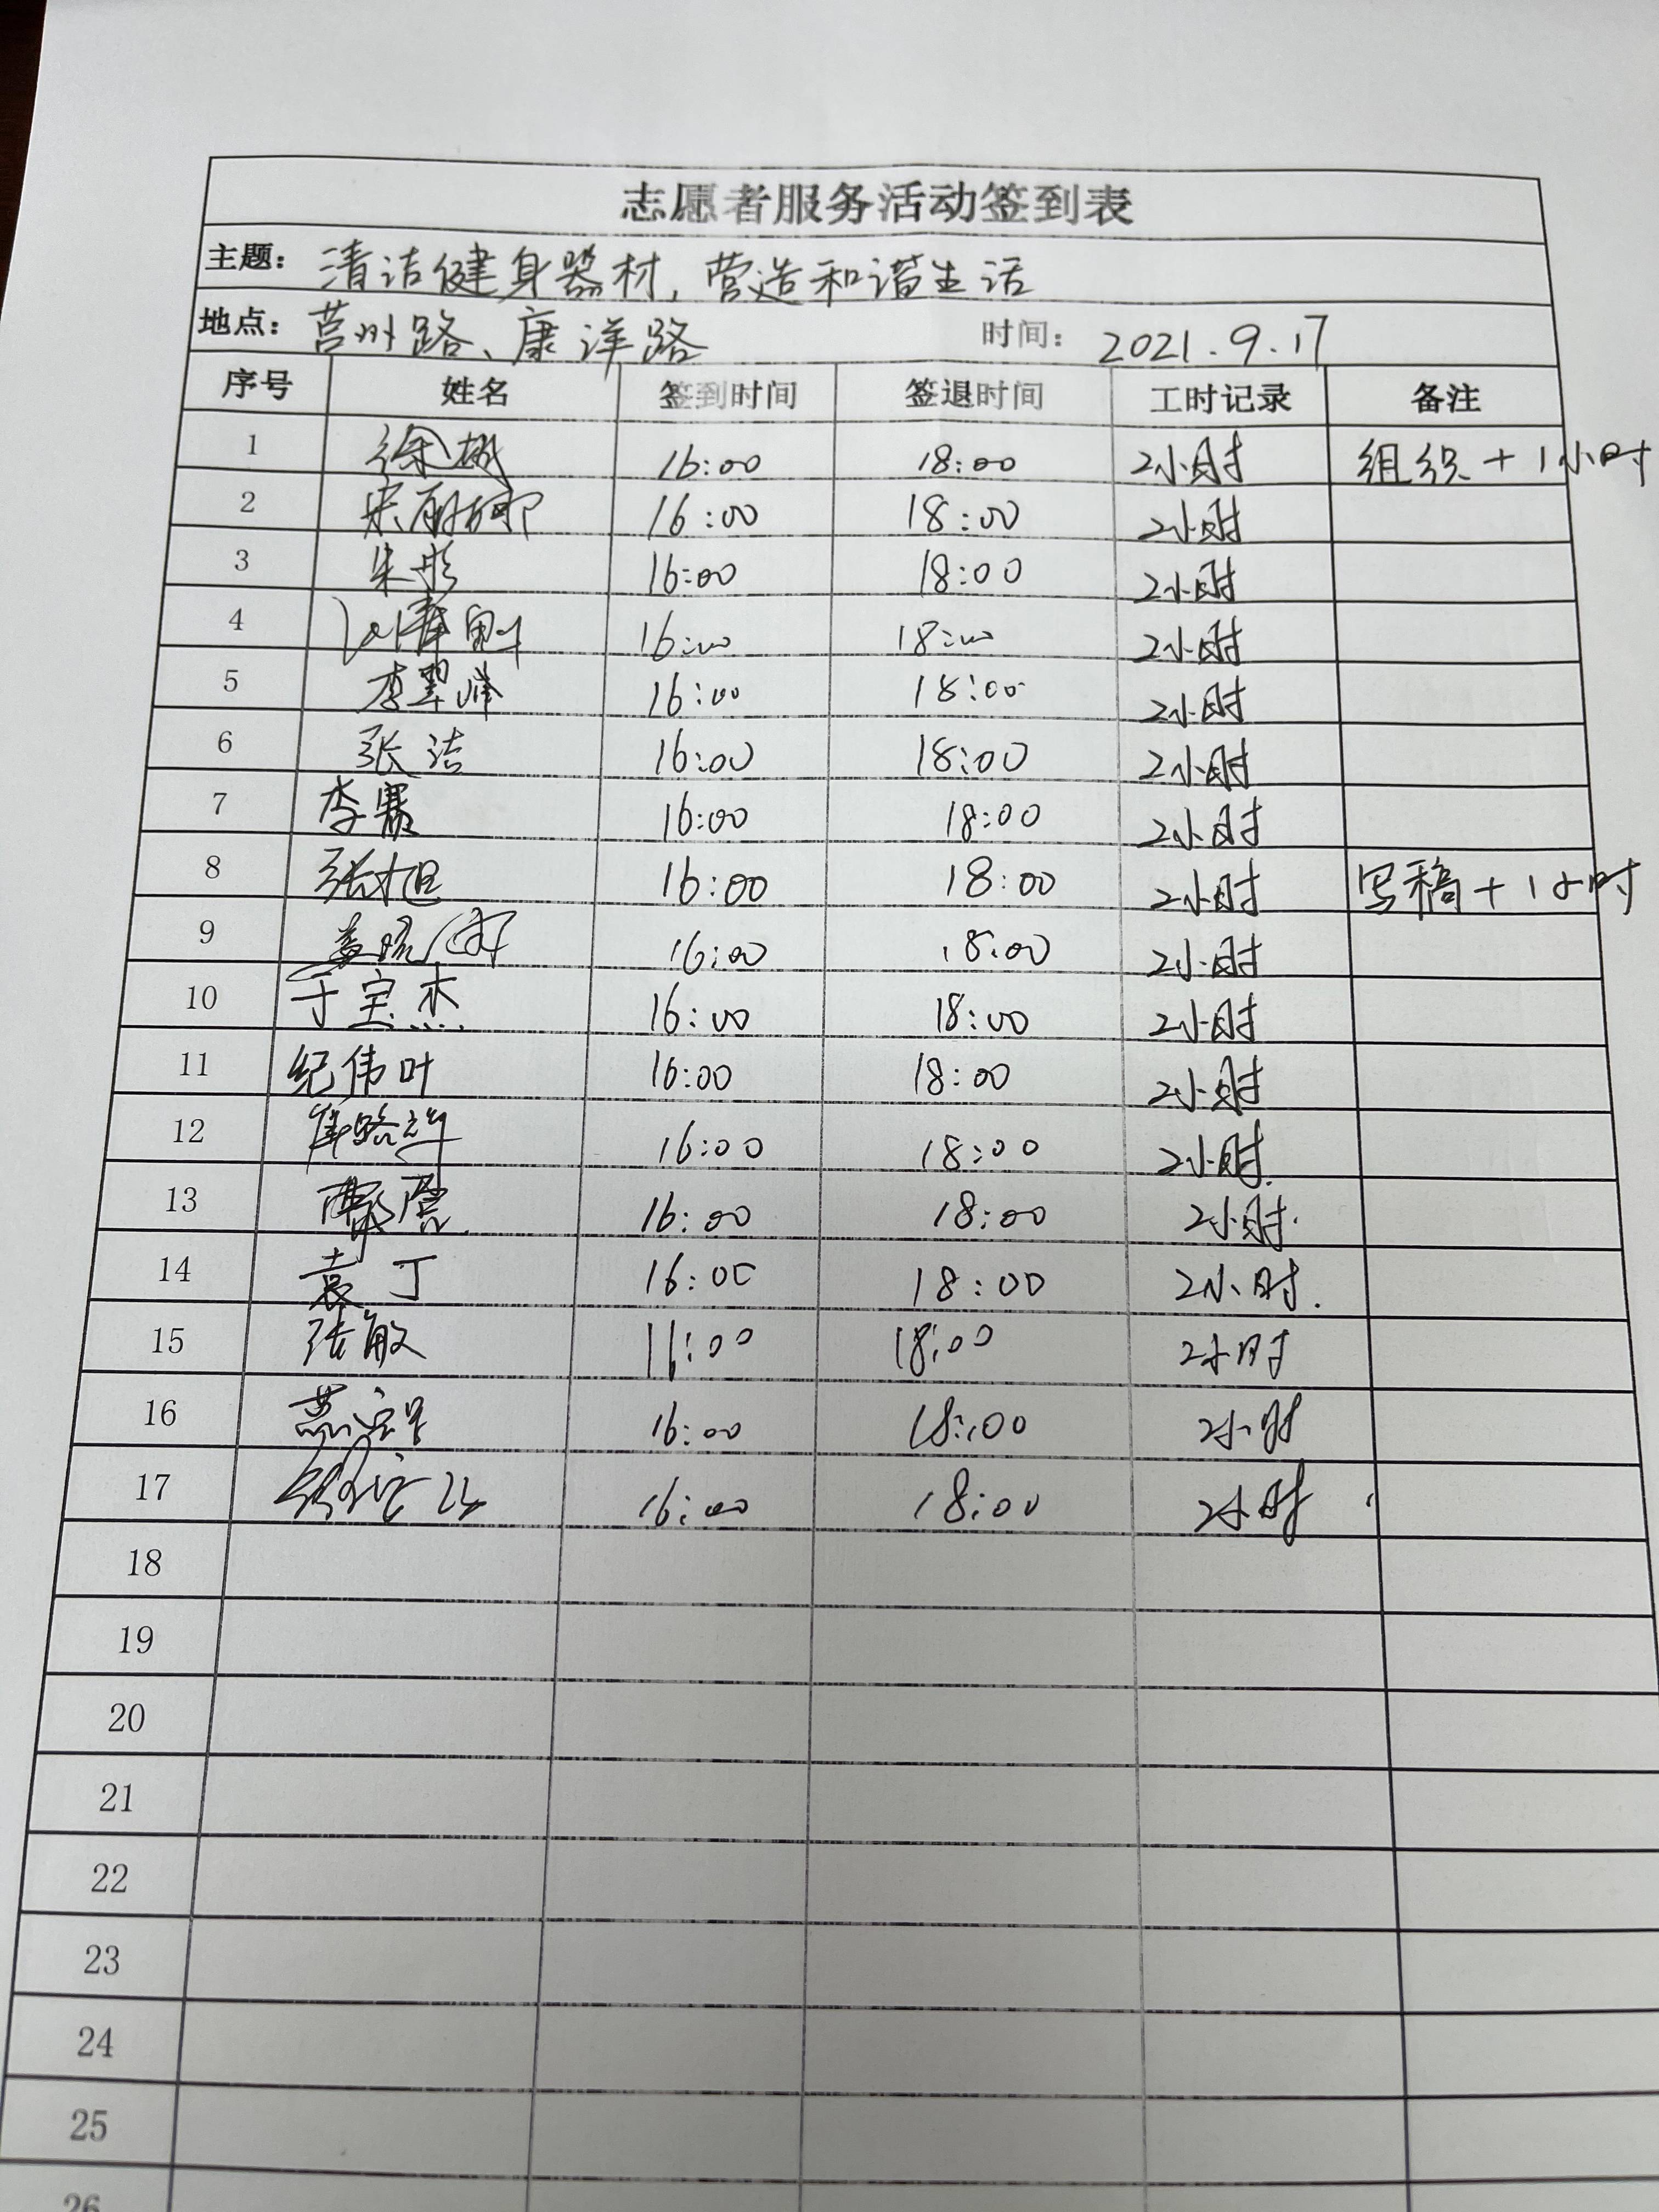 志愿者服务活动签到表
主题： 清洁健身器材, 营造和谐生活
地点： 莒州路、康洋路 时间： 2021.9.17
序号 姓名 签到时间 签退时间 工时记录 备注
1 徐 16:00 18:00 2小时 组织+1小时
2 宋丽娜 16:00 18:00 2小时
3 朱彤 16:00 18:00 2小时
4 16:00 18:00 2小时
5 李翠峰 16:00 18:00 2小时
6 张洁 16:00 18:00 2小时
7 李赛 16:00 18:00 2小时
8 张旭 16:00 18:00 2小时 写稿+1小时
9 16:00 18:00 2小时
10 于宝杰 16:00 18:00 2小时
11 纪伟叶 16:00 18:00 2小时
12 16:00 18:00 2小时.
13 16:00 18:00 2小时.
14 袁丁 16:00 18:00 2小时.
15 张敏 16:00 18:00 2小时
16 16:00 18:00 2小时
17 16:00 18:00 2小时
18
19
20
21
22
23
24
25
26